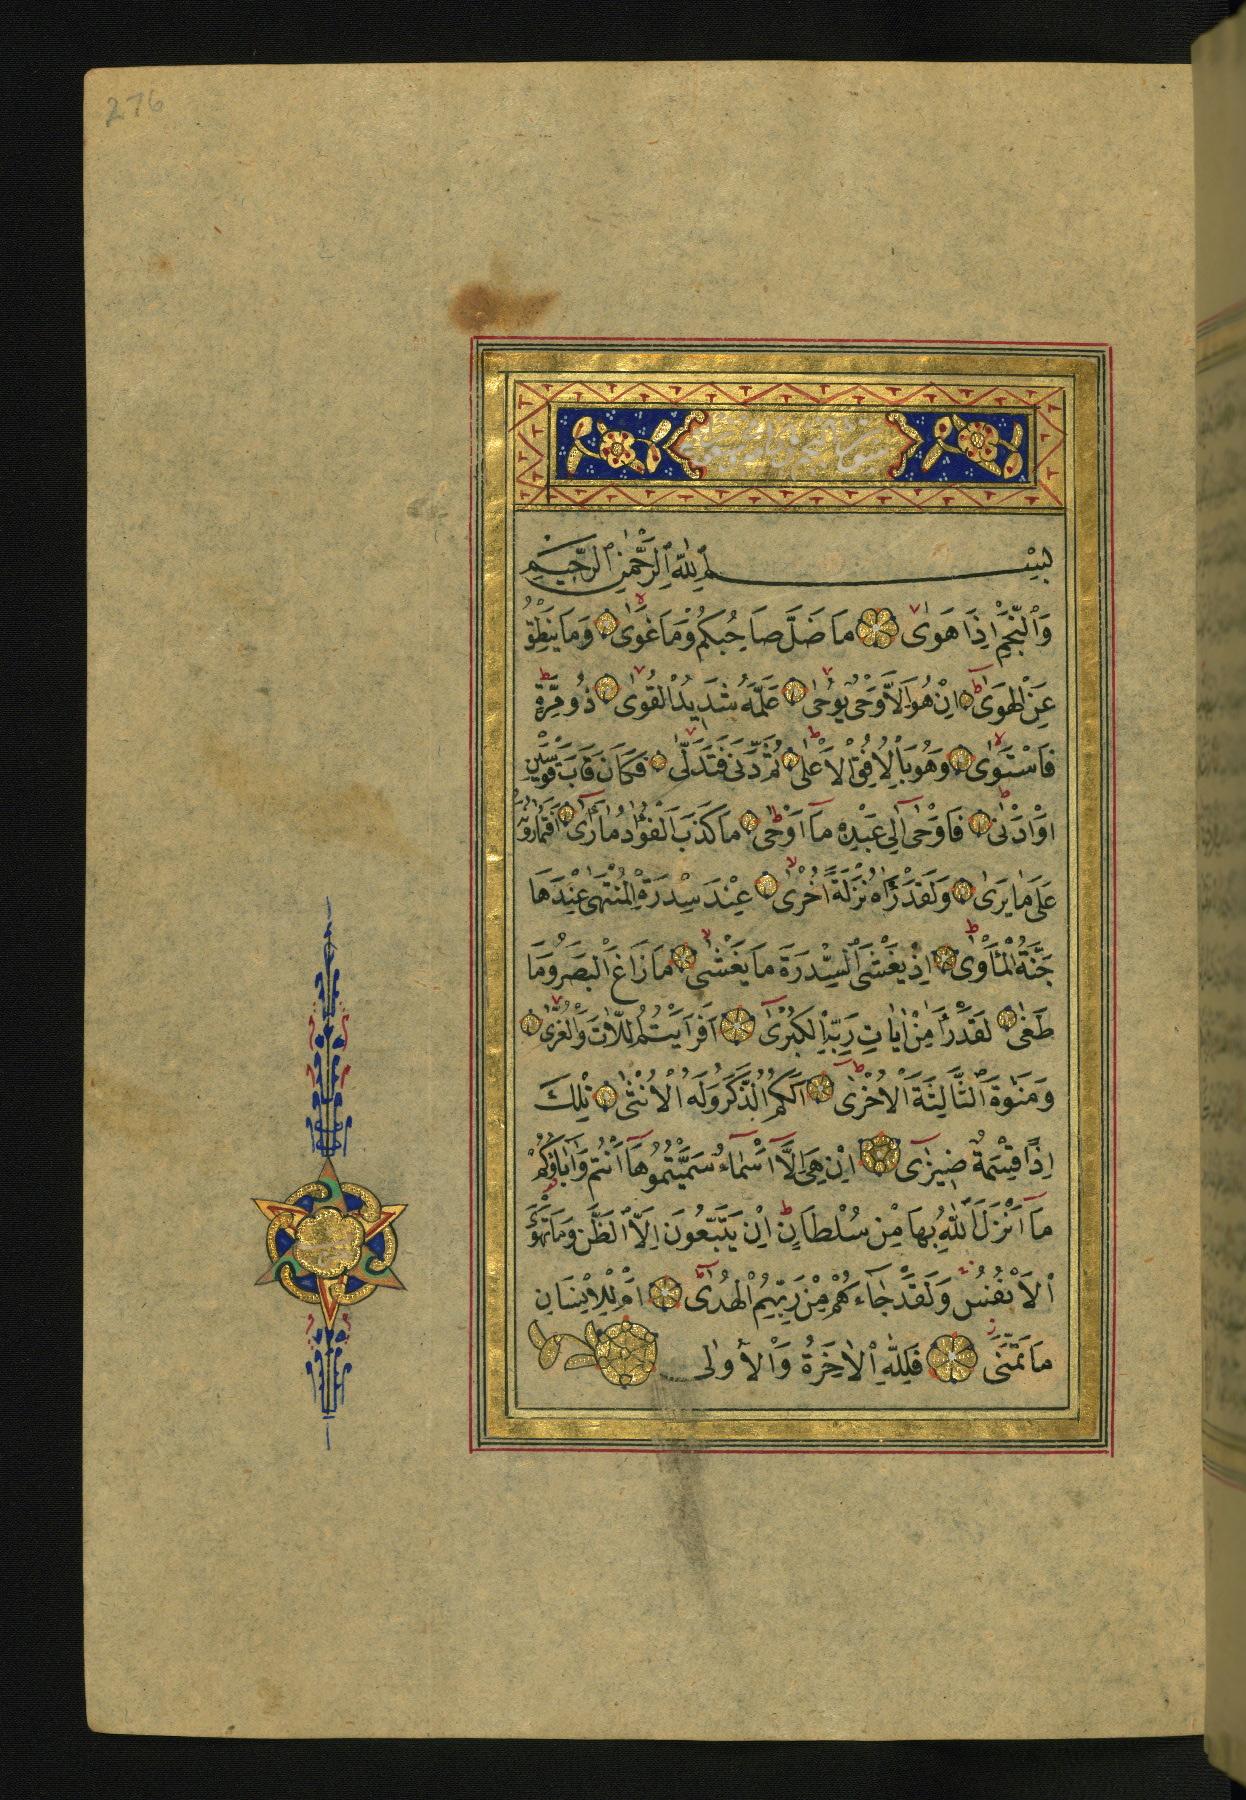 276
بِسْمِ ٱللّٰهِ ٱلرَّحْمٰنِ ٱلرَّحِيمِ
وَٱلنَّجْمِ اِذَا هَوٰى مَا ضَلَّ صَاحِبُكُمْ وَمَا غَوٰى وَمَا يَنْطِقُ
عَنِ الْهَوٰى اِنْ هُوَ اِلَّا وَحْىٌ يُوحٰى عَلَّمَهُ شَدِيدُ الْقُوٰى ذُو مِرَّةٍ
فَاسْتَوٰى وَهُوَ بِالْاُفُقِ الْاَعْلٰى ثُمَّ دَنٰى فَتَدَلّٰى فَكَانَ قَابَ قَوْسَيْنِ
اَوْ اَدْنٰى فَاَوْحٰى اِلٰى عَبْدِهِ مَآ اَوْحٰى مَا كَذَبَ الْفُؤٰادُ مَا رَاٰى اَفَتُمَارُونَهُ
عَلٰى مَا يَرٰى وَلَقَدْ رَاٰهُ نَزْلَةً اُخْرٰى عِنْدَ سِدْرَةِ الْمُنْتَهٰى عِنْدَهَا
جَنَّةُ الْمَأْوٰى اِذْ يَغْشَى ٱلسِّدْرَةَ مَا يَغْشٰى مَا زَاغَ الْبَصَرُ وَمَا
طَغٰى لَقَدْ رَاٰ مِنْ اٰيَاتِ رَبِّهِ الْكُبْرٰى اَفَرَاَيْتُمُ اللَّاتَ وَالْعُزّٰى
وَمَنٰوةَ ٱلثَّالِثَةَ الْاُخْرٰى اَلَكُمُ الذَّكَرُ وَلَهُ الْاُنْثٰى تِلْكَ
اِذًا قِسْمَةٌ ضِيزٰى اِنْ هِىَ اِلَّآ اَسْمَآءٌ سَمَّيْتُمُوهَآ اَنْتُمْ وَاٰبَاؤُكُمْ
مَآ اَنْزَلَ ٱللّٰهُ بِهَا مِنْ سُلْطَانٍ اِنْ يَتَّبِعُونَ اِلَّا ٱلظَّنَّ وَمَا تَهْوَى
ٱلْاَنْفُسُ وَلَقَدْ جَآءَهُمْ مِنْ رَبِّهِمُ الْهُدٰى اَمْ لِلْاِنْسَانِ
مَا تَمَنّٰى فَلِلّٰهِ ٱلْاٰخِرَةُ وَالْاُولٰى